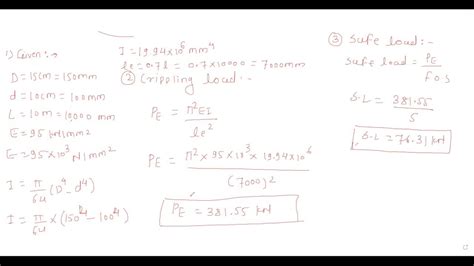 1) Given :-
D = 15cm = 150mm
d = 10cm = 100mm
L = 10m = 10000 mm
E = 95 kN/mm²
E = 95×10³ N/mm²
I = π/64 (D⁴ - d⁴)
I = π/64 × (150⁴ - 100⁴)
I = 19.94×10⁶ mm⁴
le = 0.7l = 0.7×10000 = 7000mm
② Crippling load :-
PE = π²EI / le²
PE = π² × 95 × 10³ × 19.94 × 10⁶ / (7000)²
PE = 381.55 kN
③ Safe load :-
Safe load = PE / FOS
S.L = 381.55 / 5
S.L = 76.31 kN